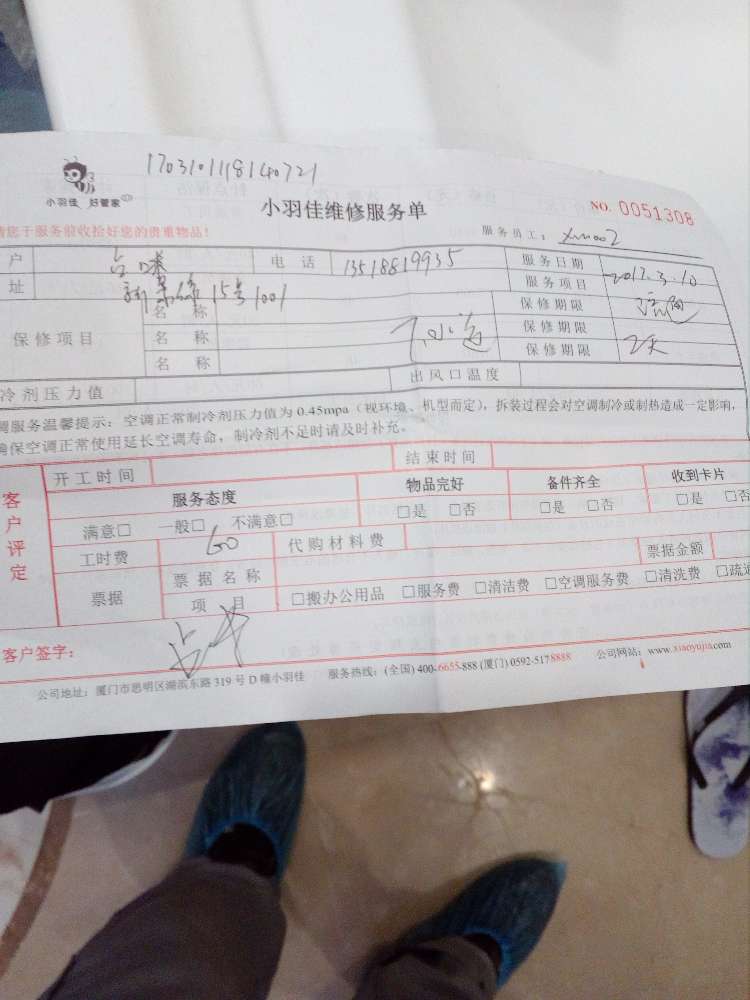 1703101118140721
小羽佳 好管家
小羽佳维修服务单
NO. 0051308
请您于服务前收拾好您的贵重物品！
服务员工：xm002
户 占咪 电 话 13518819935 服务日期 2017.3.10
址 15号1001 服务项目
保修项目 名 称 保修期限
名 称 下水道 保修期限
名 称 保修期限 2天
冷剂压力值 出风口温度
调服务温馨提示：空调正常制冷剂压力值为 0.45mpa（视环境、机型而定），拆装过程会对空调制冷或制热造成一定影响，
确保空调正常使用延长空调寿命，制冷剂不足时请及时补充。
客户评定 开工时间 结束时间
服务态度 物品完好 备件齐全 收到卡片
满意□ 一般□ 不满意□ □是 □否 □是 □否 □是 □否
工时费 60 代购材料费
票据 票据名称 票据金额
项 目 □搬办公用品 □服务费 □清洁费 □空调服务费 □清洗费 □疏通
客户签字：
公司地址：厦门市思明区湖滨东路 319 号 D 幢小羽佳 服务热线：(全国) 400-6655-888 (厦门) 0592-5178888 公司网站：www.xiaoyujia.com